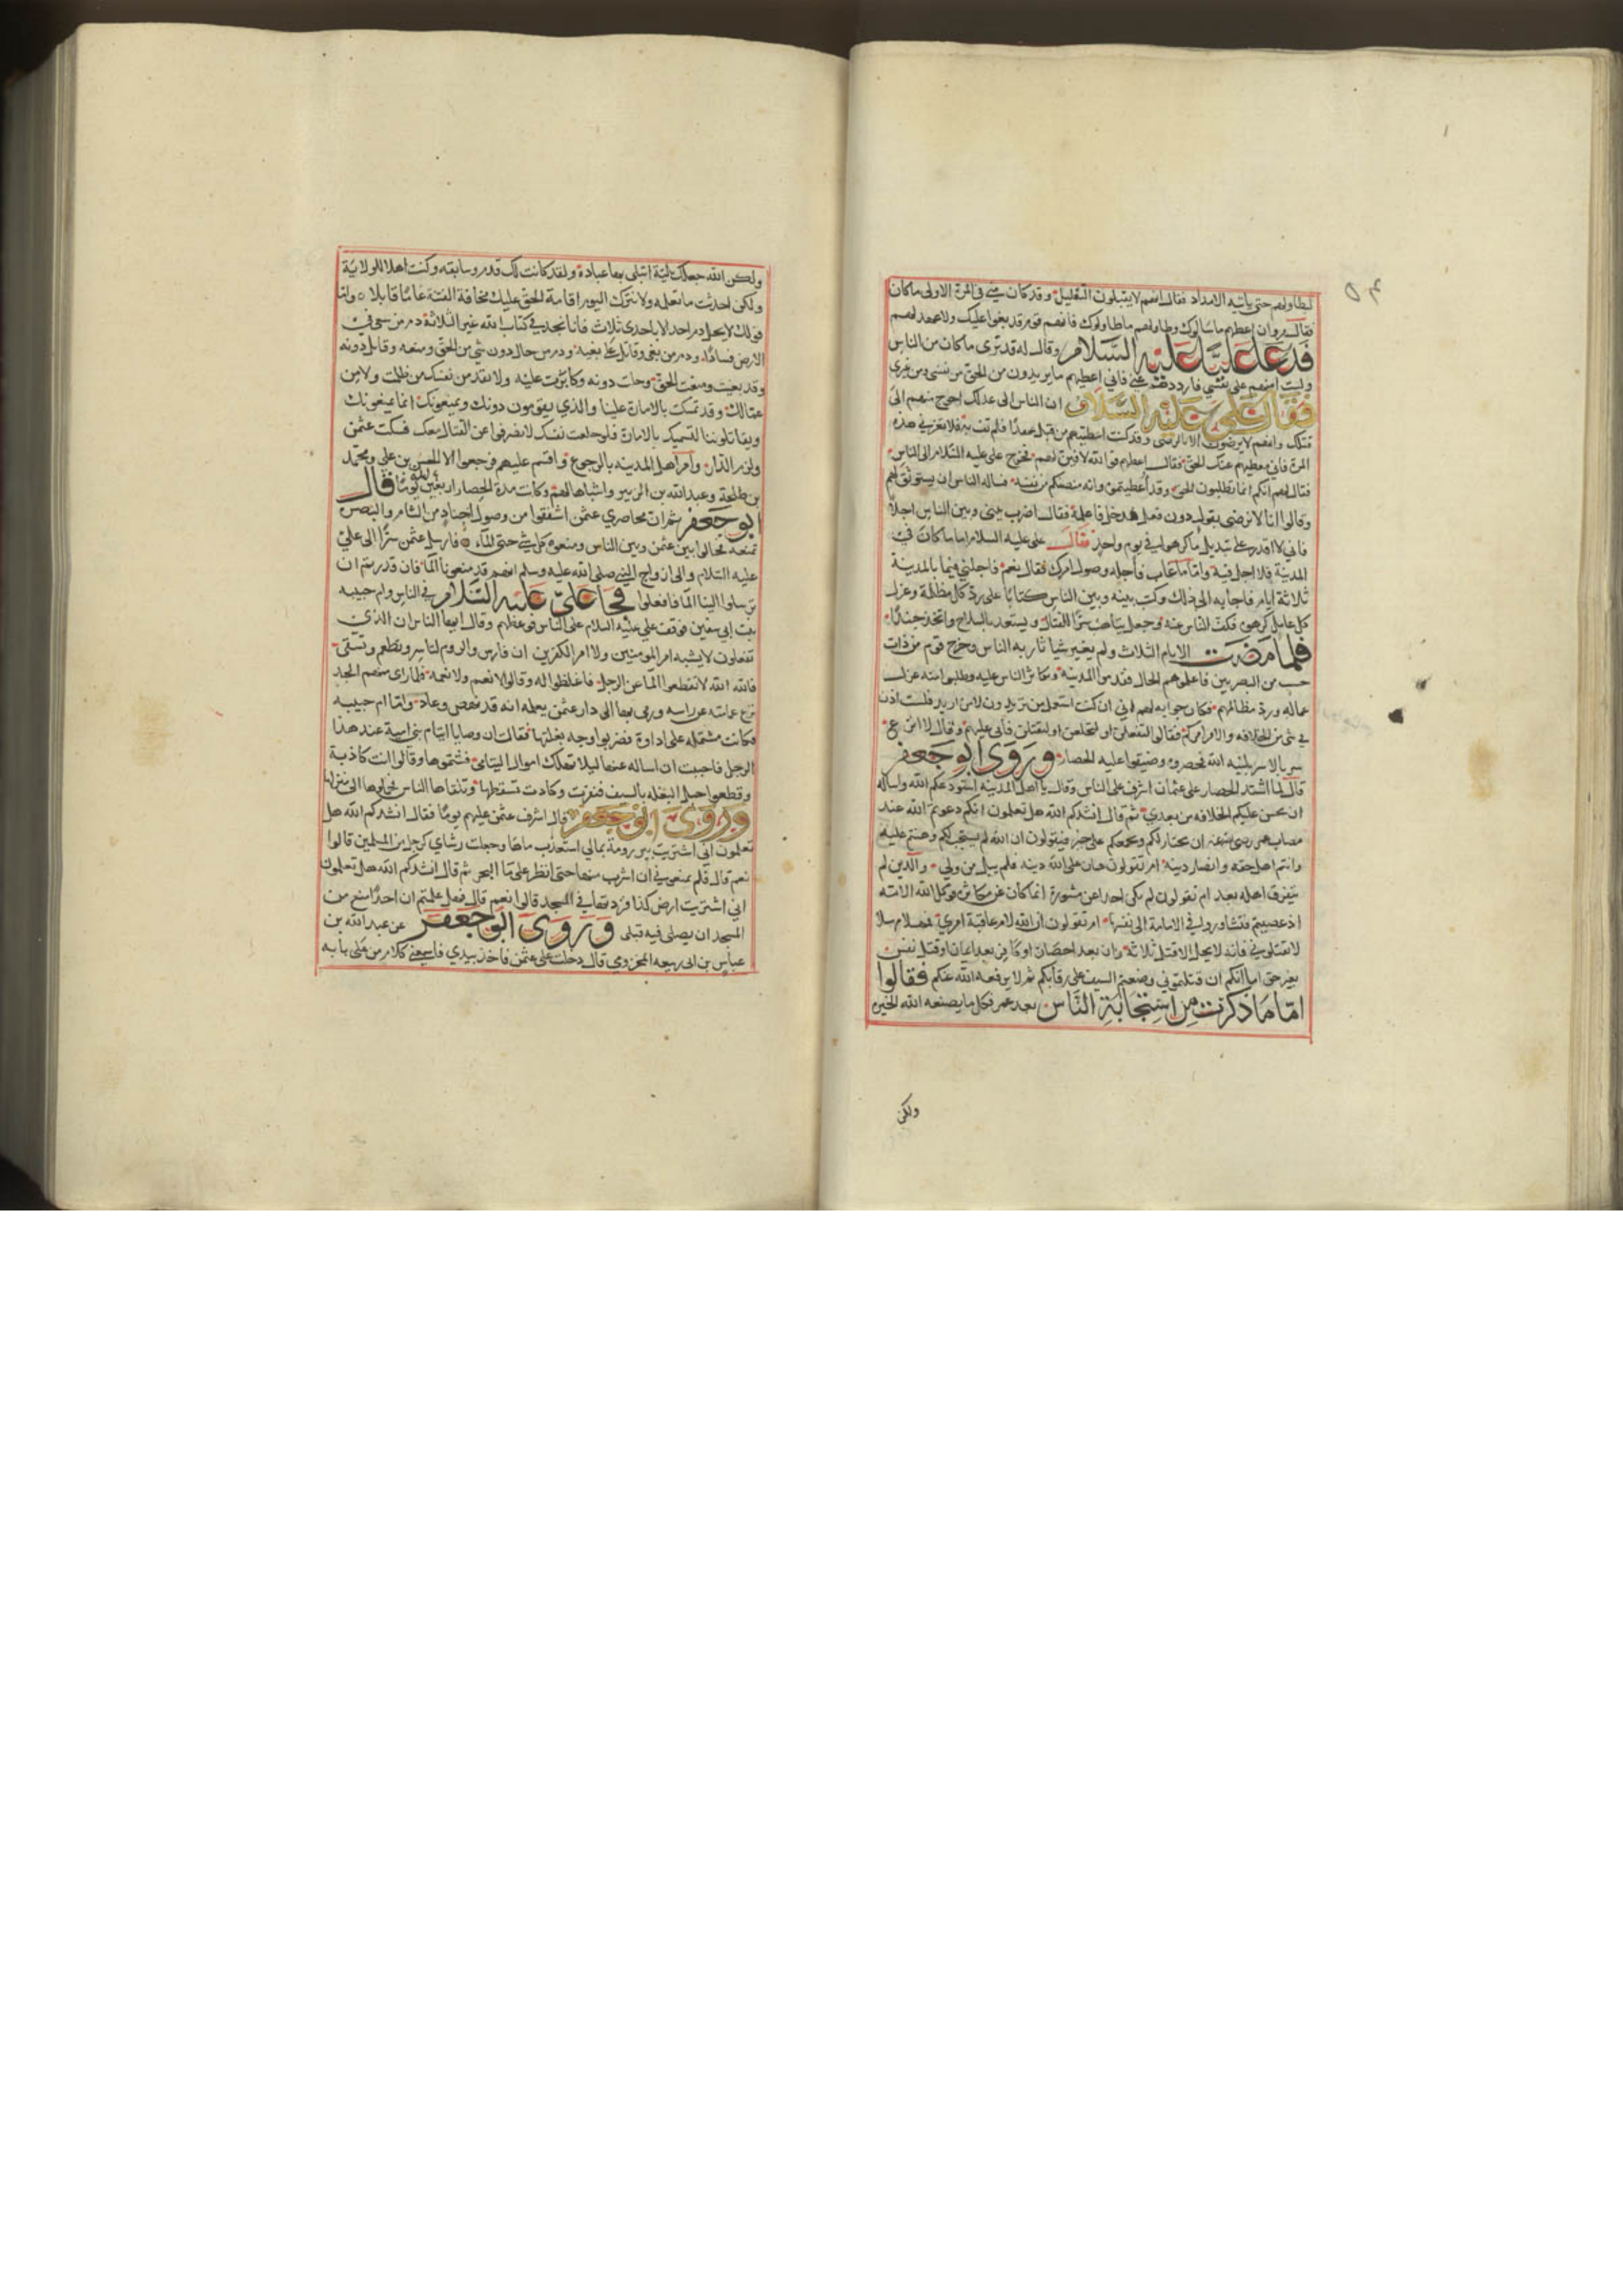 ليطاولهم حتى ياتيه الامداد فقال انهم لا يقبلون التعليل وقد كان مني في المرة الاولى ما كان
فقال مروان اعطهم ما سالوك وطاولهم ما طاولوك فانهم قوم قد بغوا عليك ولا عهد لهم
فدعا عليا عليه السلام وقال له قد ترى ما كان من الناس
ولست امنهم على نفسي فارددهم عني فاني اعطيهم ما يريدون من الحق من نفسي ومن غيري
فقال علي عليه السلام ان الناس الى عدلك احوج منهم الى
قتلك وانهم لا يرضون الا بالرضى وقد كنت اعطيتهم من قبل عهدا فلم تف به فلا تغرر في هذه
المرة فاني معطيهم عنك الحق فقال اعطهم فوالله لافين لهم فخرج علي عليه السلام الى الناس
فقال لهم انكم انما تطلبون الحق وقد اعطيتموه وانه منصفكم من نفسه فساله الناس ان يستوثق لهم
وقالوا انا لا نرضى بقول دون فعل فدخل فاعلمه فقال اضرب بيني وبين الناس اجلا
فاني لا اقدر على تبديل ما كرهوا في يوم واحد فقال علي عليه السلام اما ما كان في
المدينة فلا اجل فيه واما ما غاب فاجله وصول امرك فقال نعم فاجلني فيما بالمدينة
ثلاثة ايام فاجابه الى ذلك وكتب بينه وبين الناس كتابا على رد كل مظلمة وعزل
كل عامل كرهوه فكف الناس عنه وجعل يتاهب سرا للقتال ويستعد بالسلاح واتخذ جندا
فلما مضت الايام الثلاث ولم يغير شيا ثار به الناس وخرج قوم من ذات
خشب من المصريين فاعلموهم الحال فقدموا المدينة وتكاثر الناس عليه وطلبوا منه عزل
عماله ورد مظالمهم فكان جوابه لهم اني ان كنت استعمل من تريدون لا من اريد فلست اذن
في شي من الخلافه والامر امركم فقالوا لتفعلن او لتخلعن او لتقتلن فابى عليهم وقال لا انزع
سربالا سربلنيه الله فحصروه وضيقوا عليه الحصار وروى ابو جعفر
قال لما اشتد الحصار على عثمان اشرف على الناس وقال يا اهل المدينه استودعكم الله واساله
ان يحسن عليكم الخلافه من بعدي ثم قال انشدكم الله هل تعلمون انكم دعوتم الله عند
مصاب عمر رضي الله عنه ان يختار لكم ويجمعكم على خيركم فيقولون ان الله لم يستجب لكم وهنتم عليه
وانتم اهل حقه وانصار دينه ام تقولون هان على الله دينه فلم يبال من ولي والدين لم
يتفرق اهله بعد ام تقولون لم يكن اخذا عن مشورة انما كان عن مكاثره فوكل الله الامة
اذ عصيتم فتشاوروا في الامامة الى نفسها ام تقولون ان الله لا يعلم عاقبة امري فمهلا مهلا
لا تقتلوني فانه لا يحل الا قتل ثلاثة زان بعد احصان او كافر بعد ايمان او قتل نفس
بغير حق اما انكم ان قتلتموني وضعتم السيف على رقابكم ثم لا يرفعه الله عنكم فقالوا
اما ما ذكرت من استخابة الناس بعد عمر فكل ما يصنعه الله الخيره
ولكن
ولكن الله جعلك بلية ابتلى بها عباده ولقد كانت لك قدم وسابقه وكنت اهلا للولاية
ولكن احدثت ما تعلمه ولا نترك اليوم اقامة الحق عليك مخافة الفتنة عاما قابلا واما
قولك لا يحل دم احد الا باحدى ثلاث فانا نجد في كتاب الله غير الثلاثة دم من سعى في
الارض فسادا ودم من بغى وقاتل على بغيه ودم من حال دون شي من الحق ومنعه وقاتل دونه
وقد بغيت ومنعت الحق وحلت دونه وكابرت عليه ولا تقد من نفسك من ظلمت ولا من
عمالك وقد تمسكت بالامارة علينا والذي يقومون دونك ويمنعونك انما يمنعونك
ويقاتلوننا لتسميك بالامارة فلو خلعت نفسك لانصرفوا عن القتال معك فسكت عثمن
ولزم الدار وامر اهل المدينه بالرجوع واقسم عليهم فرجعوا الا الحسن بن علي ومحمد
بن طلحة وعبد الله بن الزبير واشباها لهم وكانت مدة الحصار اربعين يوما قال
ابو جعفر ثم ان محاصري عثمن اشفقوا من وصول اجناد من الشام والبصره
تمنعه فحالوا بين عثمن وبين الناس ومنعوه كل شي حتى الماء فارسل عثمن سرا الى علي
عليه السلام والى ازواج النبي صلى الله عليه وسلم انهم قد منعونا الما فان قدرتم ان
ترسلوا الينا الما فافعلوا فجا علي عليه السلام في الناس وام حبيبه
بنت ابي سفين فوقف علي عليه السلام على الناس فوعظهم وقال ايها الناس ان الذي
تفعلون لا يشبه امر المومنين ولا امر الكفرين ان فارس والروم لتاسر وتطعم وتسقي
فالله الله لا تقطعوا الما عن الرجل فاغلظوا له وقالوا لا نعم ولا نعمة فلما راى منهم الجد
نزع عمامته عن راسه ورمى بها الى دار عثمن يعلمه انه قد نهض وعاد واما ام حبيبه
فكانت مشتمله على اداوة فضربوا وجه بغلتها فقالت ان وصايا ايتام بني امية عند هذا
الرجل فاحببت ان اساله عنها ليلا تهلك اموال اليتامى فشتموها وقالوا انت كاذبة
وقطعوا حبل البغله بالسيف فنفرت وكادت تسقط بها وتلقاها الناس فحملوها الى منزلها
وروى ابو جعفر قال اشرف عثمن عليهم يوما فقال انشدكم الله هل
تعلمون اني اشتريت بير رومة بمالي استعذب ماها وجعلت رشاي كرجل من المسلمين قالوا
نعم قال فلم تمنعوني ان اشرب منها حتى افطر على ما البحر ثم قال انشدكم الله هل تعلمون
اني اشتريت ارض كذا فزدتها في المسجد قالوا نعم قال فهل علمتم ان احدا منع من
المسجد ان يصلى فيه قبلي وروى ابو جعفر عن عبد الله بن
عباس بن ابي ربيعه المخزومي قال دخلت على عثمن فاخذ بيدي فاسمعني كلام من على بابه